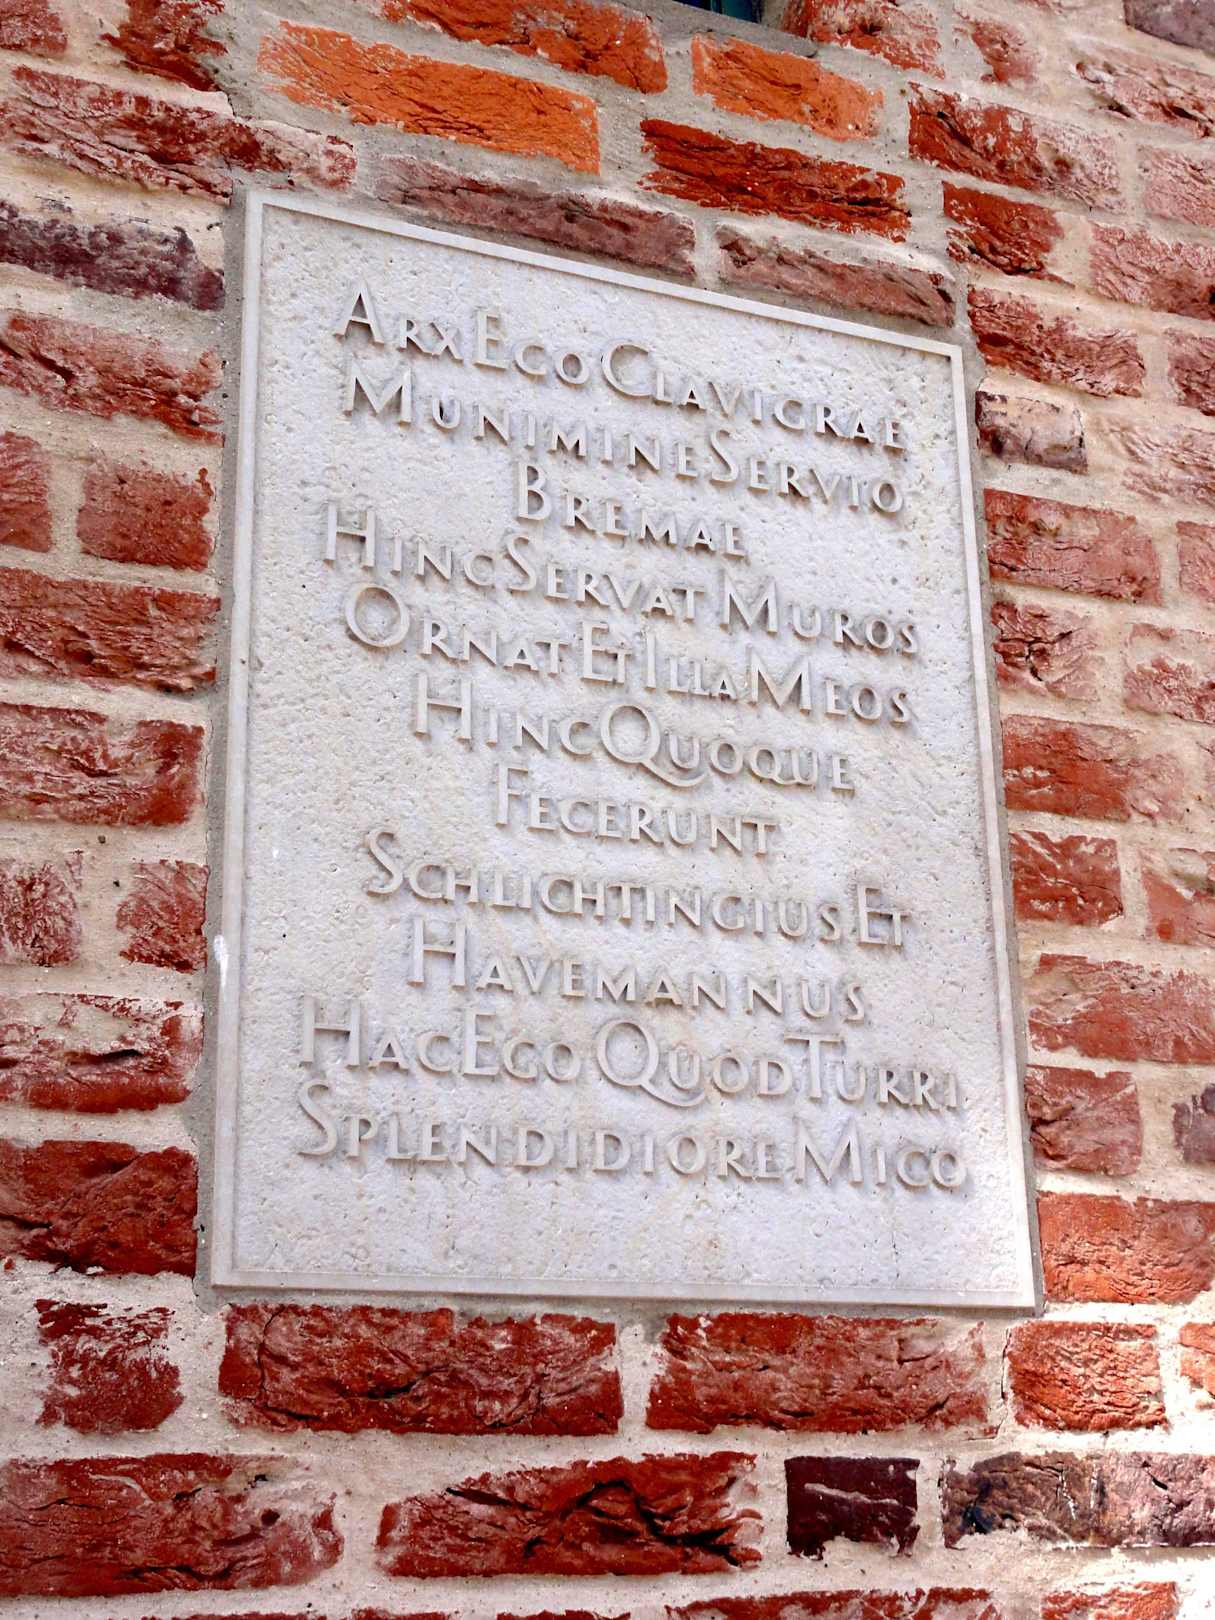 ARX EGO CLAVIGRAE
MUNIMINE SERVIO
BREMAE
HINC SERVAT MUROS
ORNAT ET ILLA MEOS
HINC QUOQUE
FECERUNT
SCHLICHTINGIUS ET
HAVEMANNUS
HAC EGO QUOD TURRI
SPLENDIDIORE MICO